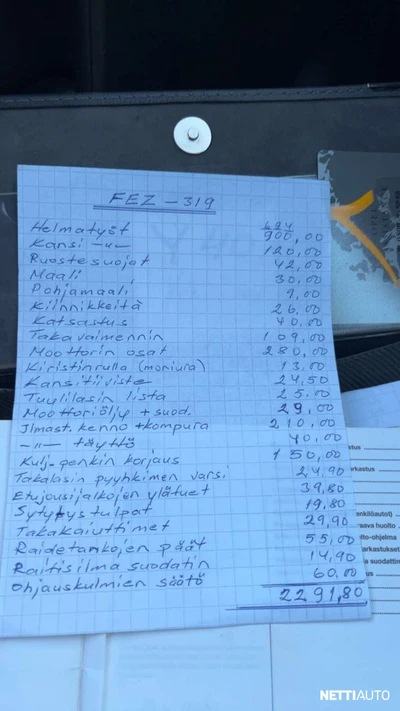 FEZ - 319
Helmatyöt 900,00
Kansi -"- 120,00
Ruostesuojat 42,00
Maali 30,00
Pohjamaali 9,00
Kiinnikkeitä 26,00
Katsastus 40,00
Takavaimennin 109,00
Moottorin osat 280,00
Kiristinrulla (moniura) 13,00
Kansitiiviste 24,50
Tuulilasin lista 25,00
Moottoriöljy + suod. 29,00
Ilmast. kenno + kompura 210,00
-"- täyttö 40,00
Kulj-penkin korjaus 150,00
Takalasin pyyhkimen varsi 24,90
Etujousijalkojen ylätuet 39,80
Sytytystulpat 19,80
Takakaiuttimet 29,90
Raidetankojen päät 55,00
Raitisilma suodatin 14,90
Ohjauskulmien säätö 60,00
2291,80
stus
arkastus
enkilöautot)
raava huolto
lto-ohjelma
arkastukset
a suodattim
stus
NETTIAUTO